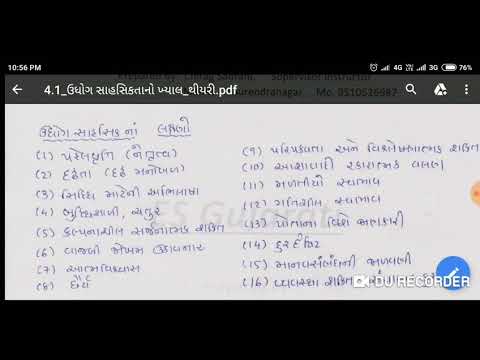 10:56 PM
4G 3G 76%
4.1_ઉધોગ સાહસિકતાનો ખ્યાલ_થીયરી.pdf
Surendranagar Mo. 9510526987
ઉદ્યોગ સાહસિક નાં લક્ષણો
(1) પહેલવૃત્તિ (નેતૃત્વ)
(2) દૃઢતા (દૃઢ મનોબળ)
(3) સિદ્ધિ માટેની અભિલાષા
(4) બુદ્ધિશાળી, ચતુર
(5) કલ્પનાશીલ સર્જનાત્મક શક્તિ
(6) વાજબી જોખમ ઉઠાવનાર
(7) આત્મવિશ્વાસ
(8) ધૈર્ય
(9) પરિપકવતા અને વિશ્લેષણાત્મક શક્તિ
(10) આશાવાદી હકારાત્મક વલણ
(11) મળતીયો સ્વભાવ
(12) ગતિશીલ સ્વભાવ
(13) પોતાના વિશે જાણકારી
(14) દુરંદેશી
(15) માનવસંબંધની જાળવણી
(16) વ્યવસ્થા શક્તિ
DU RECORDER